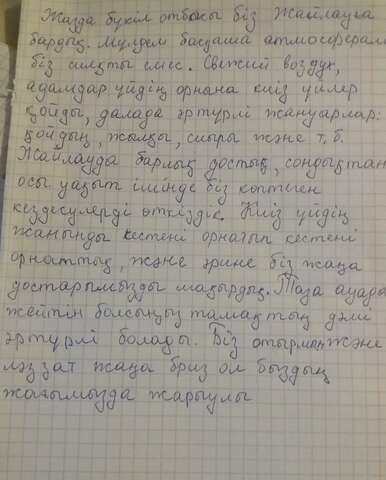 Жазда бүкіл отбасы біз Жайлауға
бардық. Мүлдем басқаша атмосфера
біз сияқты емес. Свежий воздух,
адамдар үйдің орнына киіз үйлер
қойды, далада әртүрлі жануарлар:
қойдың, жылқы, сиыры және т.б.
Жайлауда барлық достық, сондықтан
осы уақыт ішінде біз көптеген
кездесулерді өткіздік. Киіз үйдің
жанынды кестені орнатып кестені
орнаттық, және әрине біз жаңа
достарымызды шақырдық. Таза ауада
жейтін болсыңыз тамақтың дәмі
әртүрлі болады. Біз отырмын және
ләззат жаңа бриз ол быздың
жағымызда жарыулы